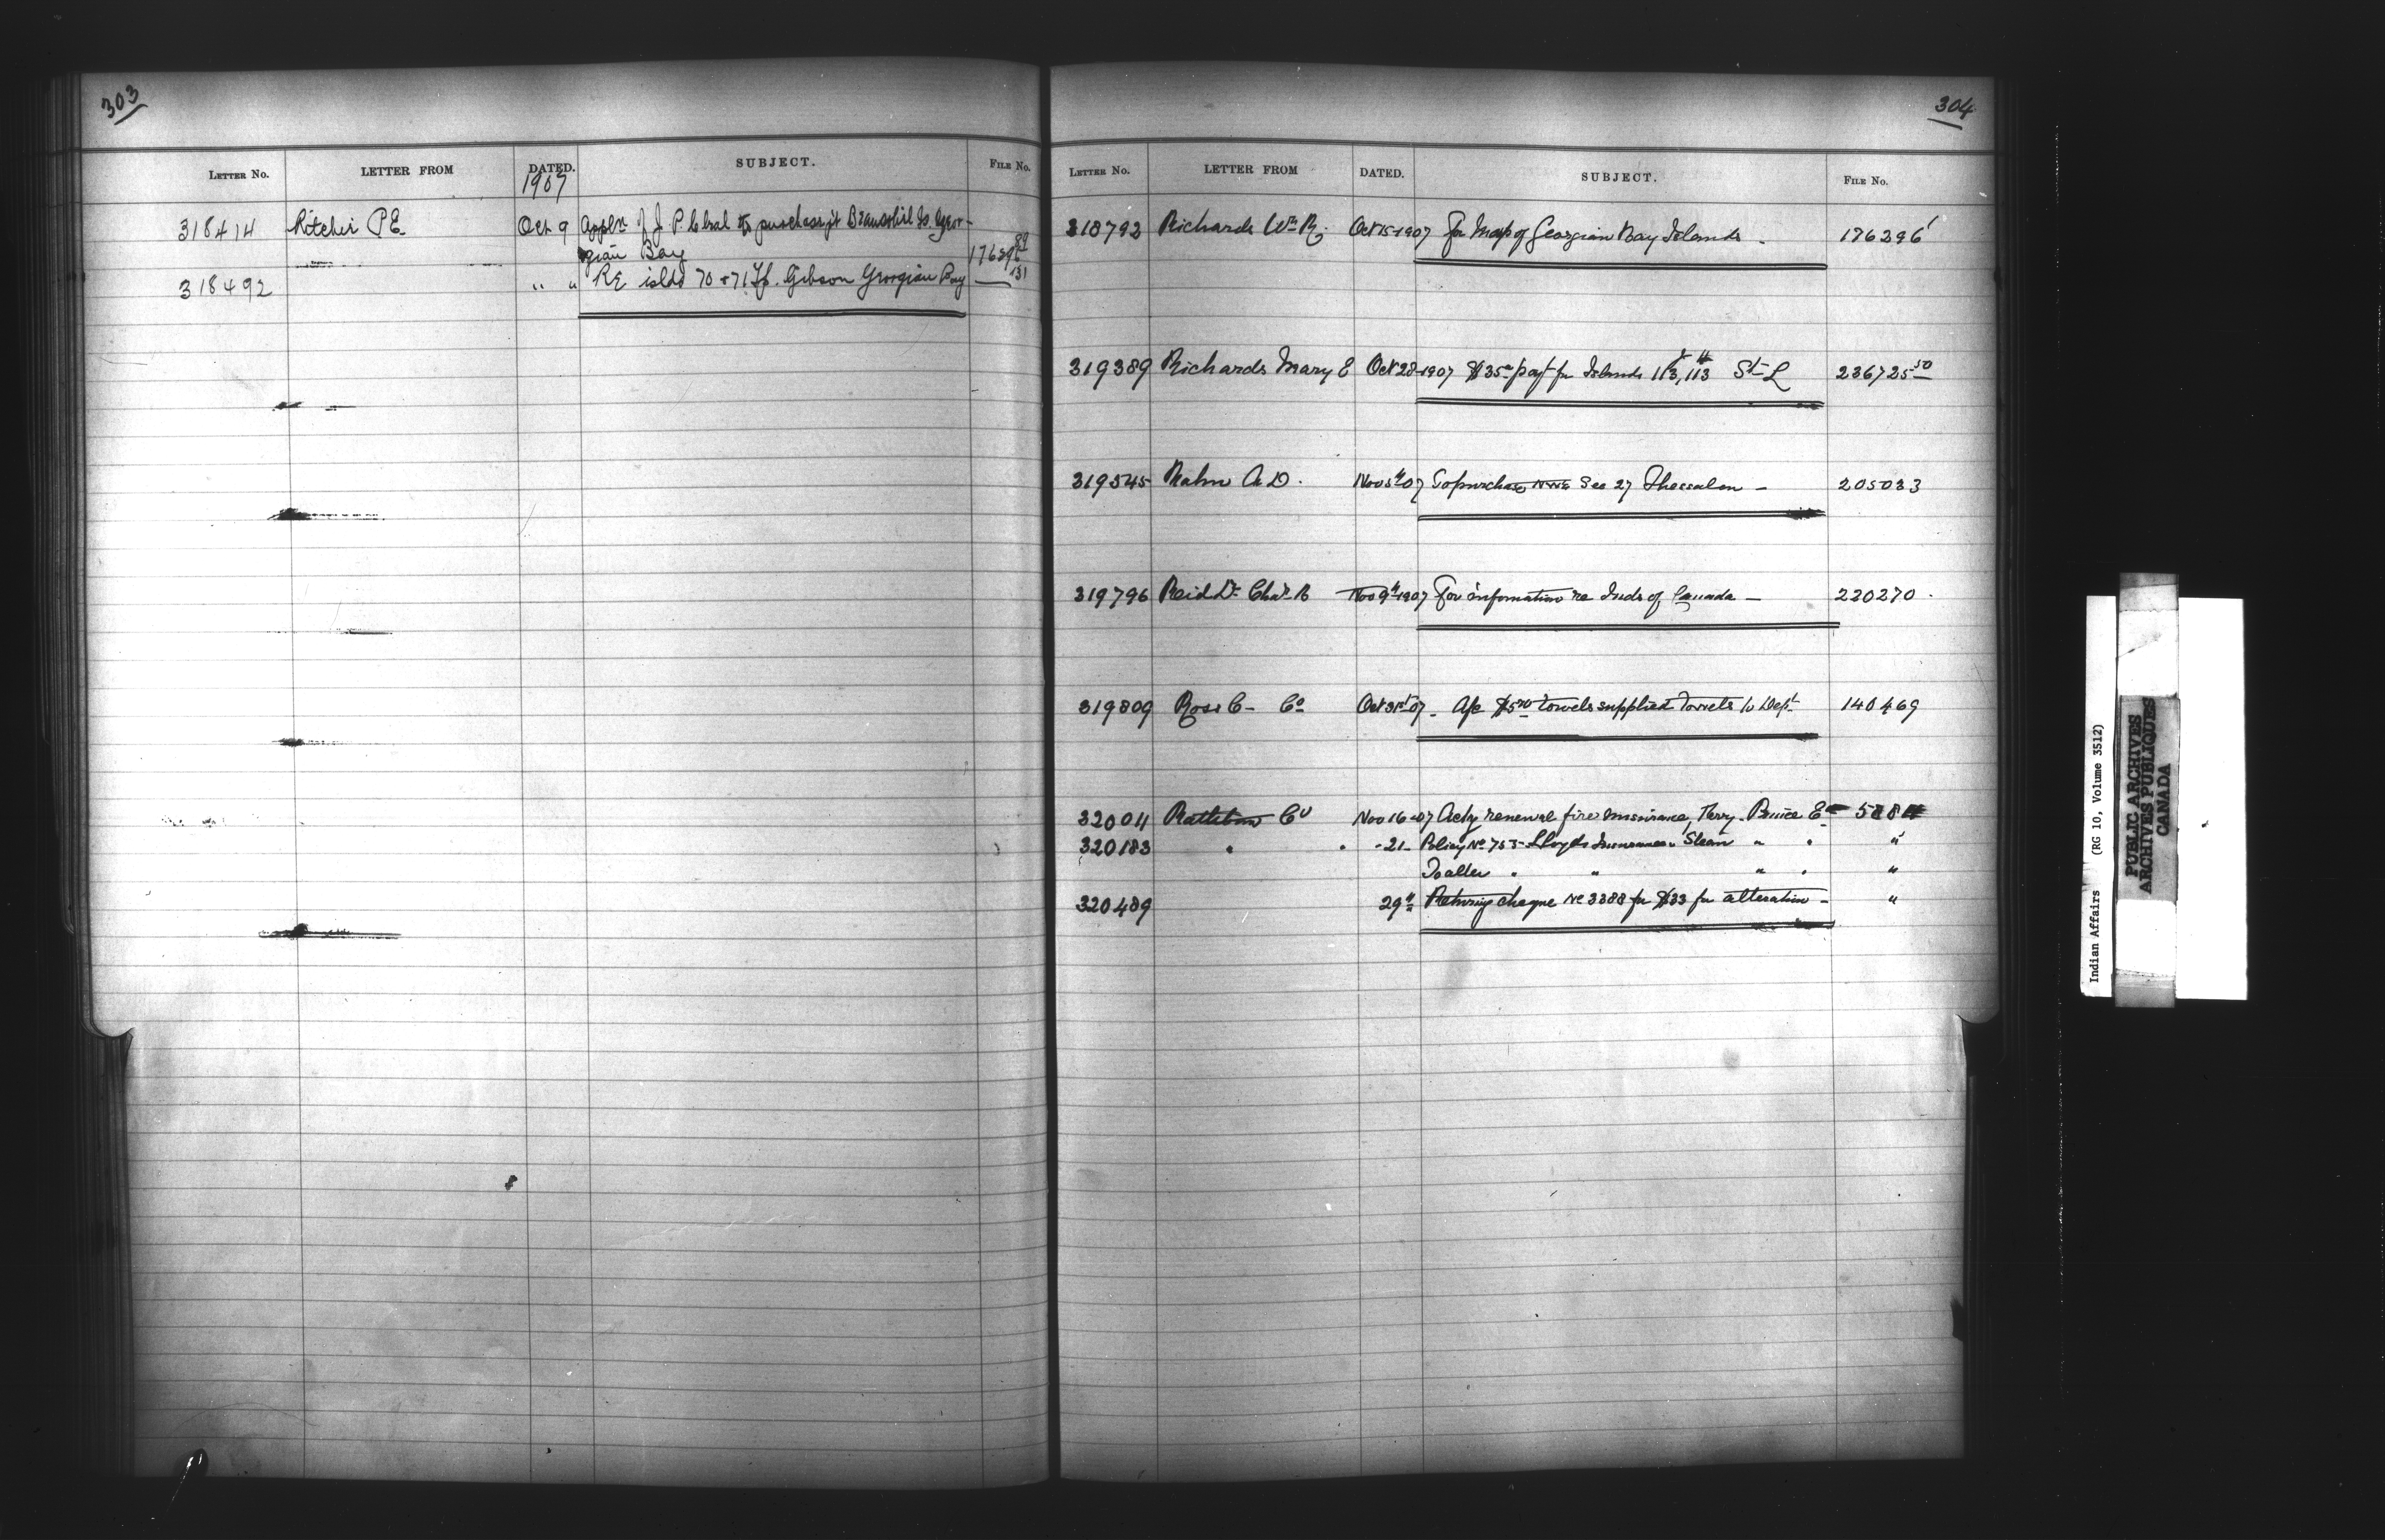 303
LETTER NO. LETTER FROM DATED. SUBJECT. FILE NO.
1907
318414 Ritchie P.E. Oct 9 Appln J.J. P. to purchase pt Beausoliel Is Geor-
gian Bay 176296
318492 " " RE islds 70 & 71 Tp. Gibson Georgian Bay — 131
304
LETTER NO. LETTER FROM DATED. SUBJECT. FILE NO.
318792 Richards Wm R. Oct 15-1907 For Map of Georgian Bay Islands. 176296
319389 Richards Mary E Oct 28-1907 $35 payt for Islands 113, 113 St L 236725-50
319545 Rahn A D. Nov 5th 07 To purchase Sec 27 Thessalon — 205033
319796 Reid Dr Chas B Nov 9th 1907 For information re Inds of Canada — 220270.
319809 Ross C - Co Oct 31st 07 - A/c $5.70 towels supplied towels to Dept 140469
320011 Rathbun Co Nov 16-07 Ackg renewal fire insurance, Ferry. Prince E
320183 " " -21- Policy No 753- Lloyds Insurance " " " "
" " " " "
320489 29th Returning cheque No 3388 for $33 for alteration - "
Indian Affairs (RG 10, Volume 3512)
PUBLIC ARCHIVES
ARCHIVES PUBLIQUES
CANADA